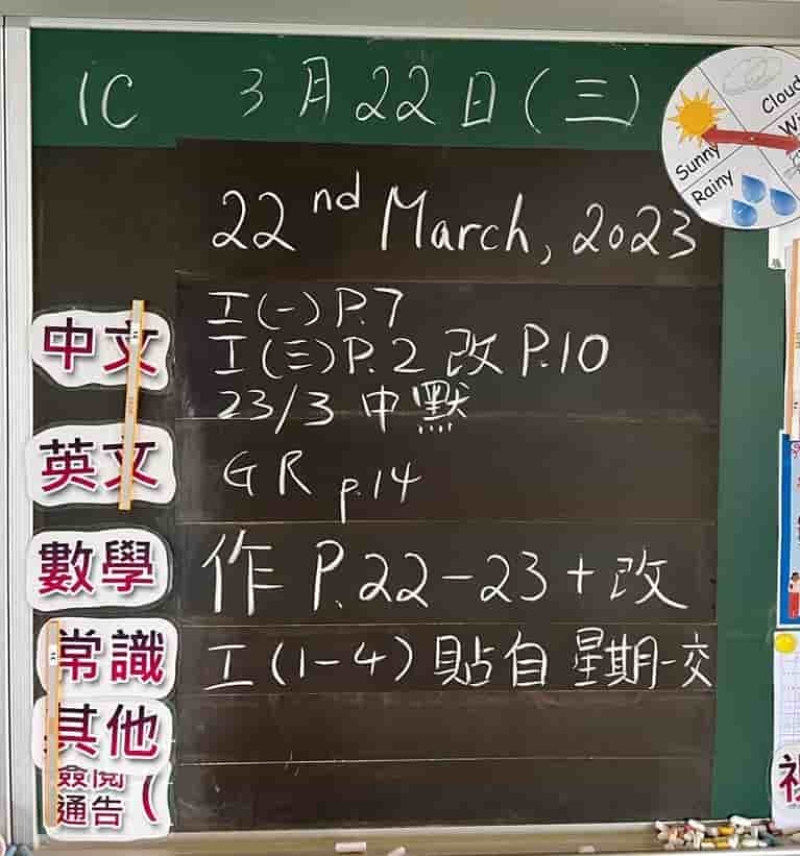 1C 3月22日(三)
22nd March, 2023
Cloud
Sunny
Rainy
中文 工(一)P.7
工(三)P.2 改 P.10
23/3 中默
英文 GR p.14
數學 作 P.22-23+改
常識 工(1-4)貼自 星期一交
其他
簽閱
通告 (